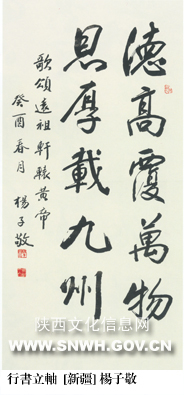 德高覆萬物
恩厚載九州
歌頌遠祖軒轅黃帝
癸酉春月 楊子敬
陕西文化信息网
WWW.SNWH.GOV.CN
行書立軸 [新疆] 楊子敬